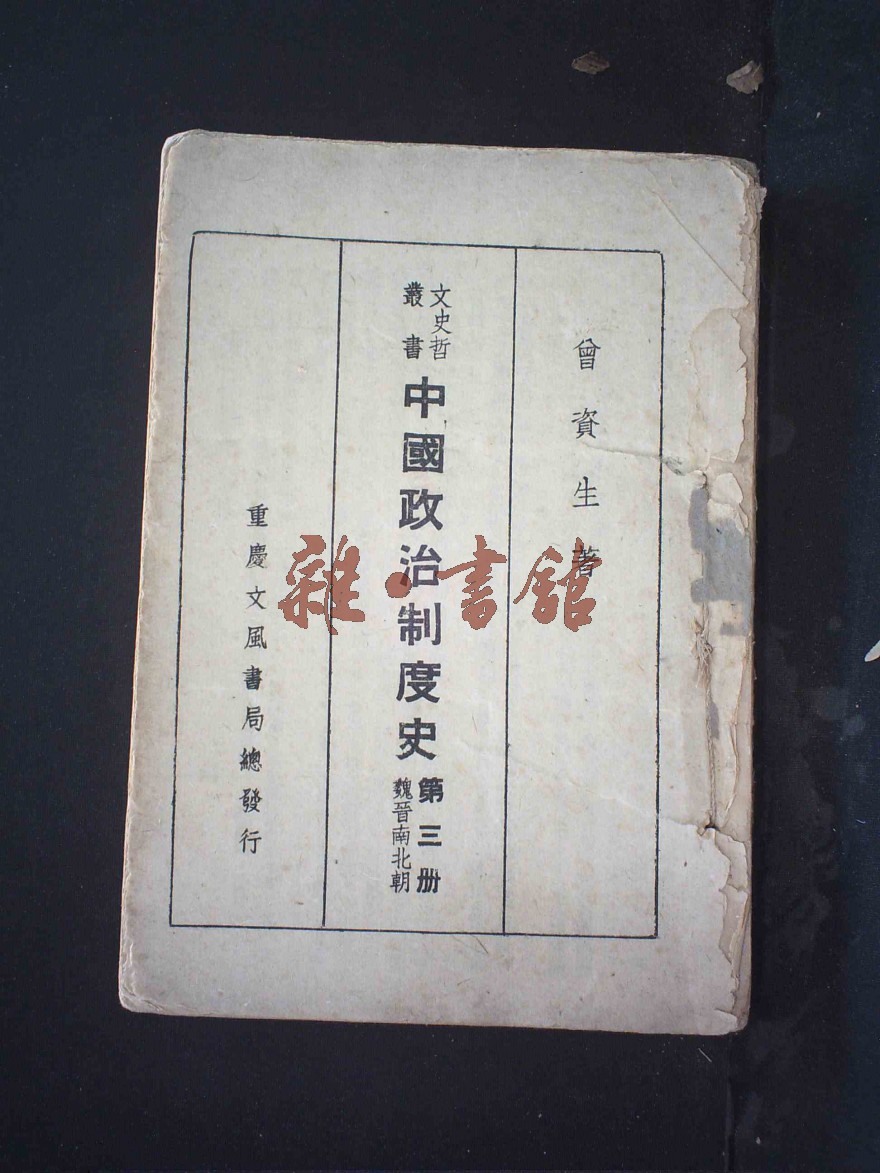 曾資生著
文史哲
叢書
中國政治制度史
第三册
魏晉南北朝
重慶文風書局總發行
雜·書館